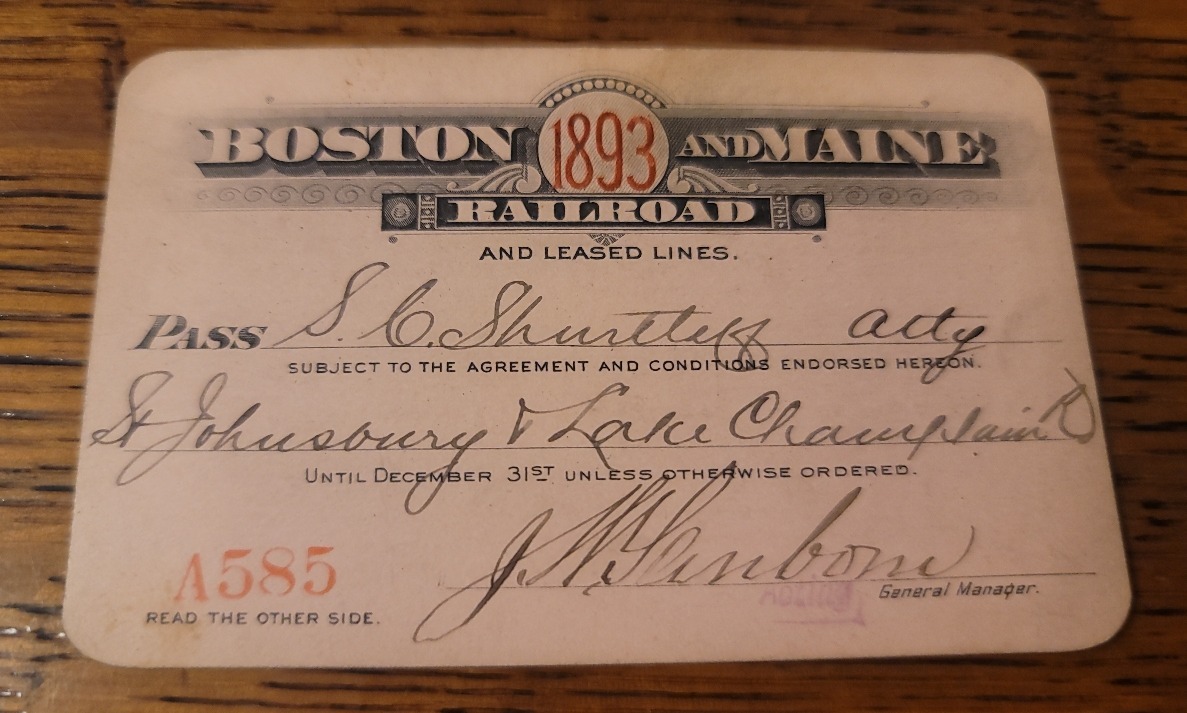 BOSTON 1893 AND MAINE
RAILROAD
AND LEASED LINES.
PASS S. C. Shurtleff Atty
SUBJECT TO THE AGREEMENT AND CONDITIONS ENDORSED HEREON.
St Johnsbury & Lake Champlain R
UNTIL DECEMBER 31ST UNLESS OTHERWISE ORDERED.
J. W. Sanborn
A585
General Manager.
READ THE OTHER SIDE.